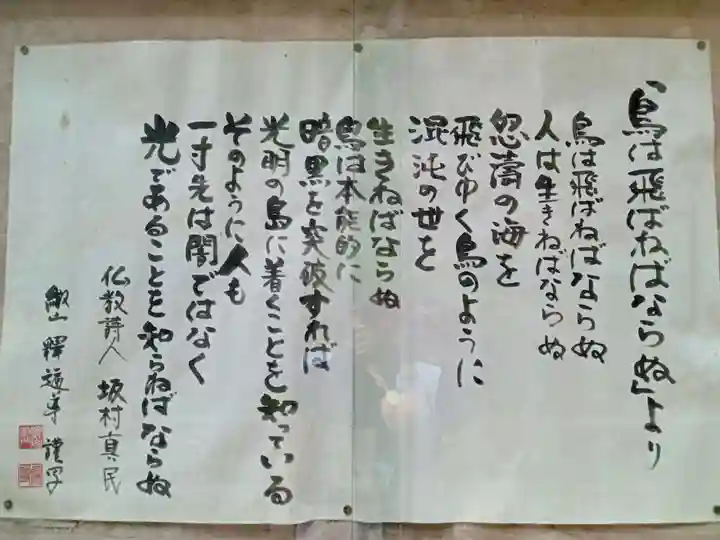 「鳥は飛ばねばならぬ」より
鳥は飛ばねばならぬ
人は生きねばならぬ
怒濤の海を
飛びゆく鳥のように
混沌の世を
生きねばならぬ
鳥は本能的に
暗黒を突破すれば
光明の島に着くことを知っている
そのように人も
一寸先は闇ではなく
光であることを知らねばならぬ
仏教詩人 坂村真民
釋 謹写